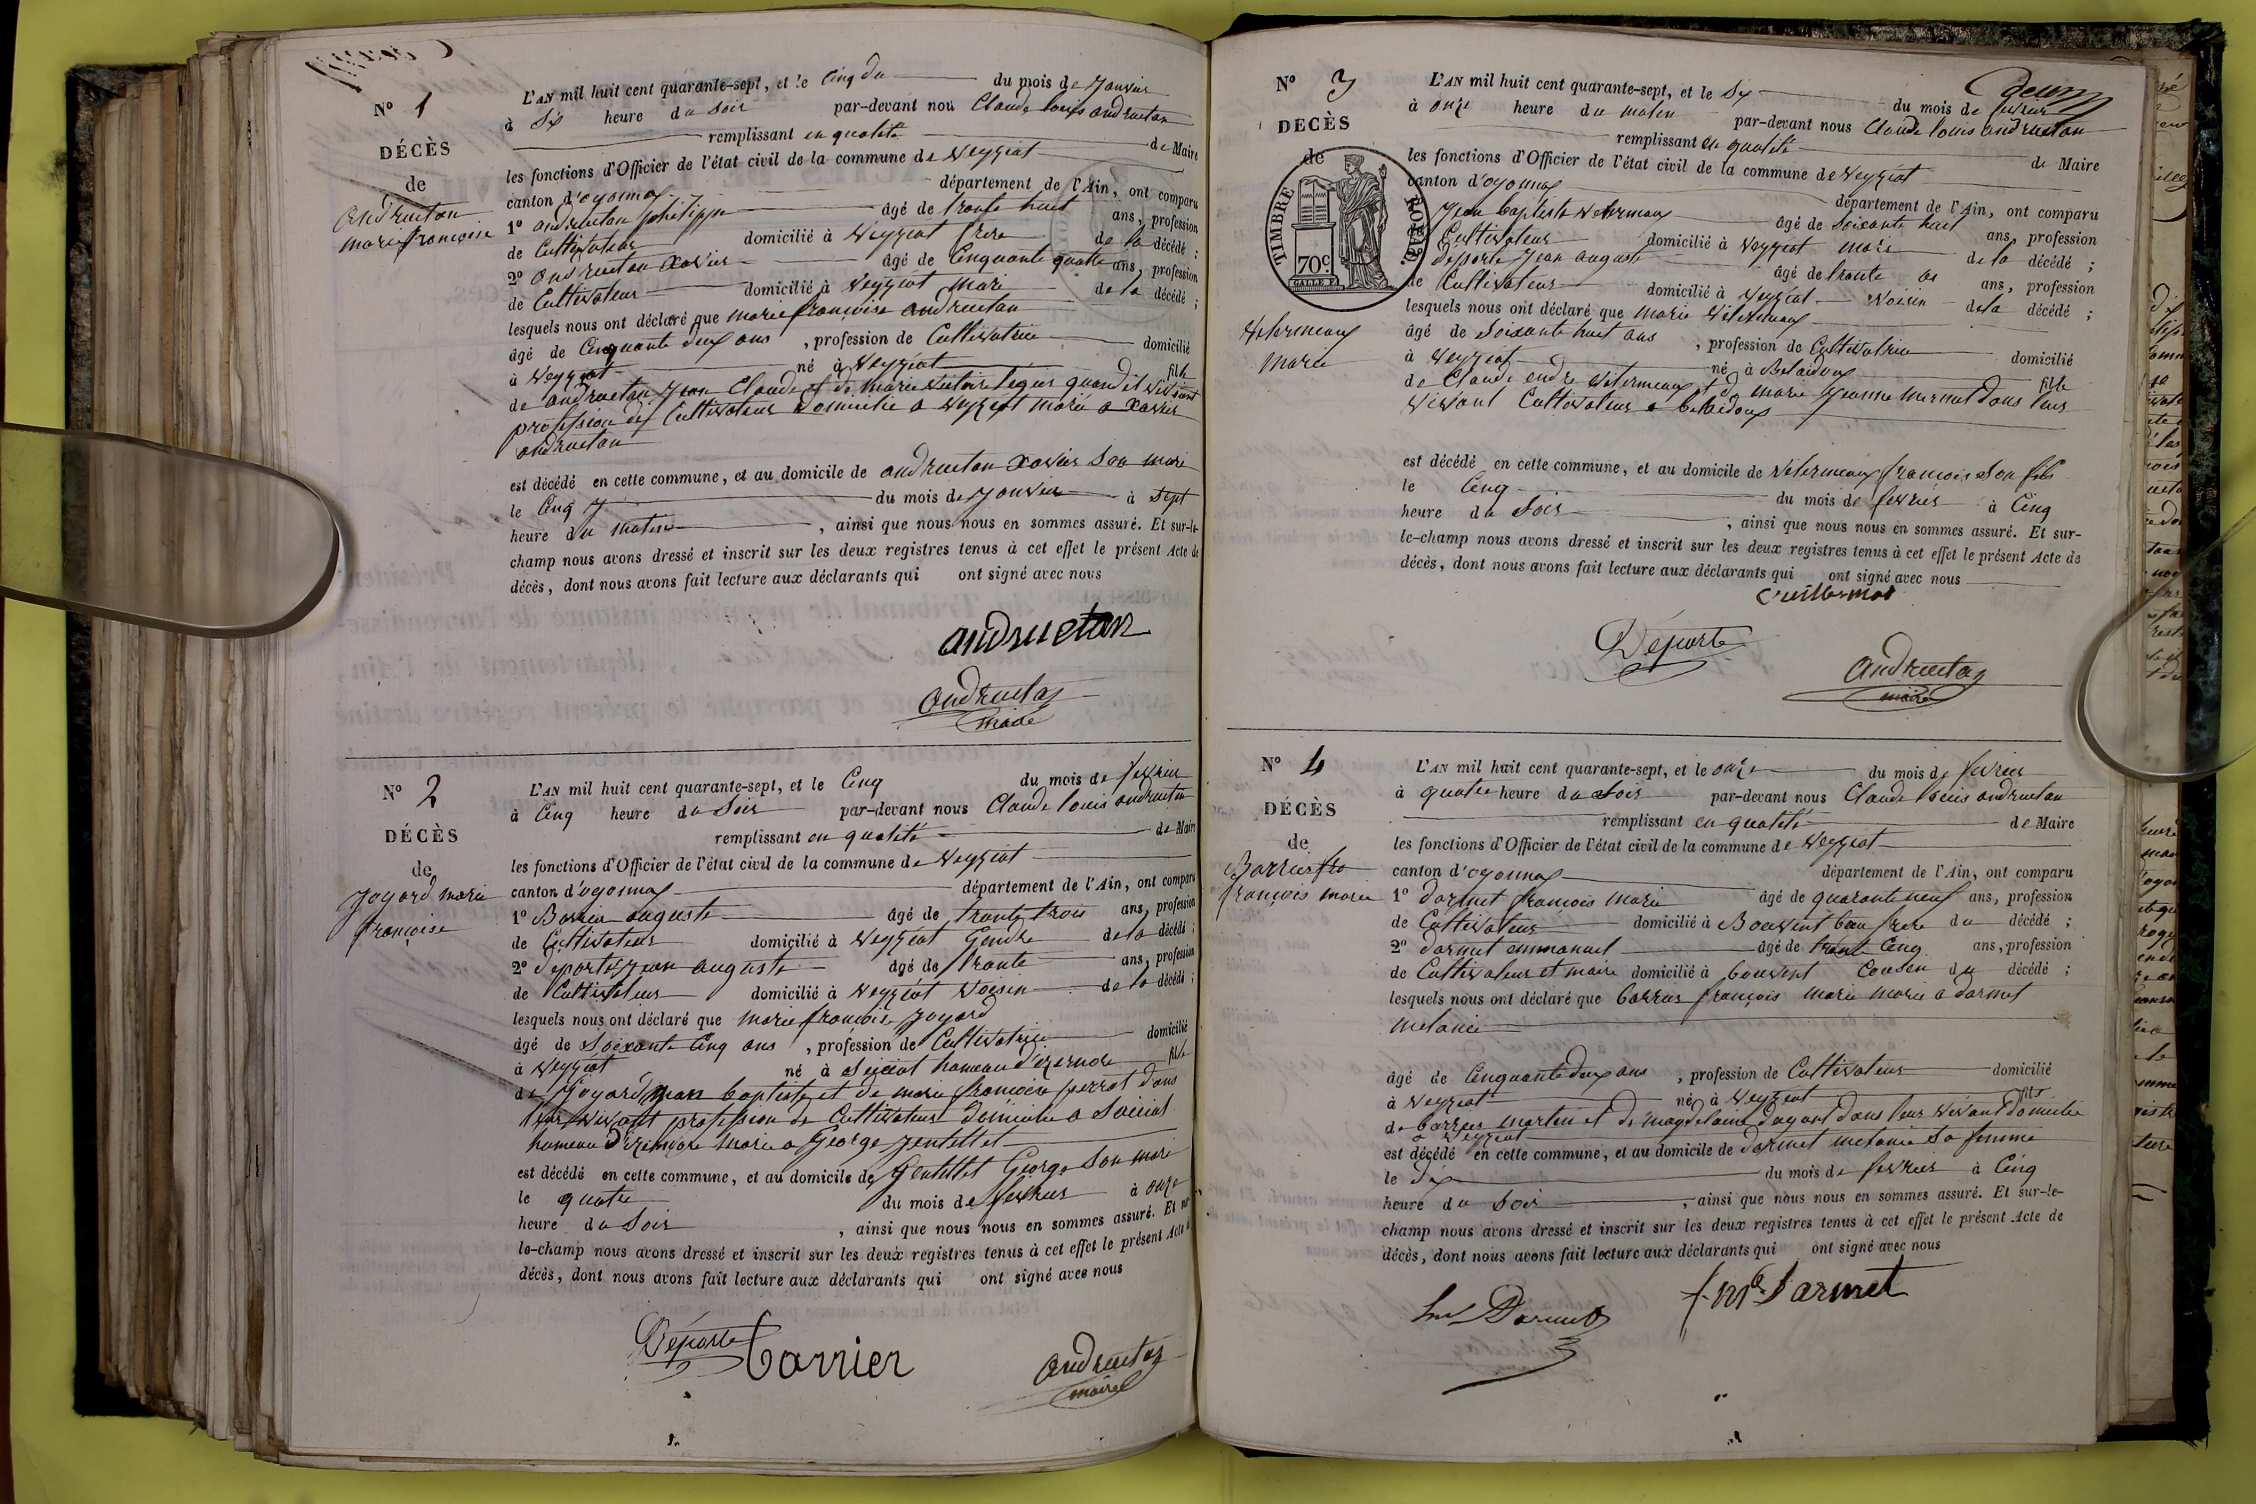 N° 1
DÉCÈS
de
Andruetan
marie françoise
L'AN mil huit cent quarante-sept, et le cinq du du mois de Janvier
à Six heure du Soir par-devant nou Claude louis andruetan
remplissant en qualité de Maire
les fonctions d'Officier de l'état civil de la commune de Veyziat
canton d'oyonnax département de l'Ain, ont comparu
1° andruetan philippe âgé de trante huit ans, profession
de Cultivateur domicilié à Veyziat frere de la décédé ;
2° andruetan xavier âgé de Cinquante quatre ans, profession
de Cultivateur domicilié à Veyziat mari de la décédé ;
lesquels nous ont déclaré que marie françoise andruetan
âgé de Cinquante deux ans , profession de Cultivatrice domicilié
à Veyziat né à Veyziat fille
de andruetan Jean Claude et de marie victoire leger quand il vivaint
profession de Cultivateur Domicilié a veyziat marié a xavier
andruetan
est décédé en cette commune, et au domicile de andruetan xavier son mari
le Cinq du mois de Janvier à sept
heure du matin , ainsi que nous nous en sommes assuré. Et sur-le-
champ nous avons dressé et inscrit sur les deux registres tenus à cet effet le présent Acte de
décès, dont nous avons fait lecture aux déclarants qui ont signé avec nous
andruetan
andruetan
maire
N° 2
DÉCÈS
de
Joyard marie
françoise
L'AN mil huit cent quarante-sept, et le Cinq du mois de fevrier
à Cinq heure du Soir par-devant nous Claude louis andruetan
remplissant en qualité de Maire
les fonctions d'Officier de l'état civil de la commune de Veyziat
canton d'oyonnax département de l'Ain, ont comparu
1° Barrier auguste âgé de trante trois ans, profession
de Cultivateur domicilié à Veyziat Gendre de la décédé ;
2° Deporte Jean auguste âgé de trante ans, profession
de Cultivateur domicilié à Veyziat Voisin de la décédé ;
lesquels nous ont déclaré que marie françoise Joyard
âgé de Soixante Cinq ans , profession de Cultivatrice domicilié
à Veyziat né à hameau d'izernore fille
de Joyard Jean baptiste et de marie françoise perrat dans
leur vivant profession de Cultivateur Domicilié a
hameau D'izernore marié a George Jentellet
est décédé en cette commune, et au domicile de Gentellet George son mari
le quatre du mois de fevrier à onze
heure du Soir , ainsi que nous nous en sommes assuré. Et sur-
le-champ nous avons dressé et inscrit sur les deux registres tenus à cet effet le présent Acte de
décès, dont nous avons fait lecture aux déclarants qui ont signé avec nous
Déporte barrier
andruetan
maire
N° 3
DECÈS
de
TIMBRE ROYAL
70 c.
Vuhermoz
Marie
L'AN mil huit cent quarante-sept, et le Six du mois de fevrier
à onze heure du matin par-devant nous Claude louis andruetan
remplissant en qualité de Maire
les fonctions d'Officier de l'état civil de la commune de Veyziat
canton d'oyonnax département de l'Ain, ont comparu
Jean baptiste âgé de Soixante huit ans, profession
Cultivateur domicilié à Veyziat mari de la décédé ;
Deporte Jean auguste âgé de trante ans, profession
de Cultivateur domicilié à Veyziat Voisin de la décédé ;
lesquels nous ont déclaré que marie
âgé de Soixante huit ans , profession de Cultivatrice domicilié
à Veyziat né à Belaidoux fille
de Claude et de marie Jeanne dans leur
vivant Cultivateur a belaidoux
est décédé en cette commune, et au domicile de françois son fils
le Cinq du mois de fevrier à Cinq
heure du Soir , ainsi que nous nous en sommes assuré. Et sur-
le-champ nous avons dressé et inscrit sur les deux registres tenus à cet effet le présent Acte de
décès, dont nous avons fait lecture aux déclarants qui ont signé avec nous
Vuillermoz
Déporte
andruetan
maire
N° 4
DÉCÈS
de
Barrier fro
françois marie
L'AN mil huit cent quarante-sept, et le onze du mois de fevrier
à quatre heure du Soir par-devant nous Claude louis andruetan
remplissant en qualité de Maire
les fonctions d'Officier de l'état civil de la commune de Veyziat
canton d'oyonnax département de l'Ain, ont comparu
1° darmet françois marie âgé de quarante neuf ans, profession
de Cultivateur domicilié à Bouvent beau frere du décédé ;
2° darmet emmanuel âgé de trante Cinq ans, profession
de Cultivateur et maire domicilié à bouvent Cousen du décédé ;
lesquels nous ont déclaré que barrier françois marie marié a darmet
melanie
âgé de Cinquante deux ans , profession de Cultivateur domicilié
à Veyziat né à Veyziat fils
de barrier martin et de magdelaine dans leur vivant domicilié
a Veyziat
est décédé en cette commune, et au domicile de darmet melanie sa femme
le dix du mois de fevrier à Cinq
heure du Soir , ainsi que nous nous en sommes assuré. Et sur-le-
champ nous avons dressé et inscrit sur les deux registres tenus à cet effet le présent Acte de
décès, dont nous avons fait lecture aux déclarants qui ont signé avec nous
Darmet
f. m. Darmet